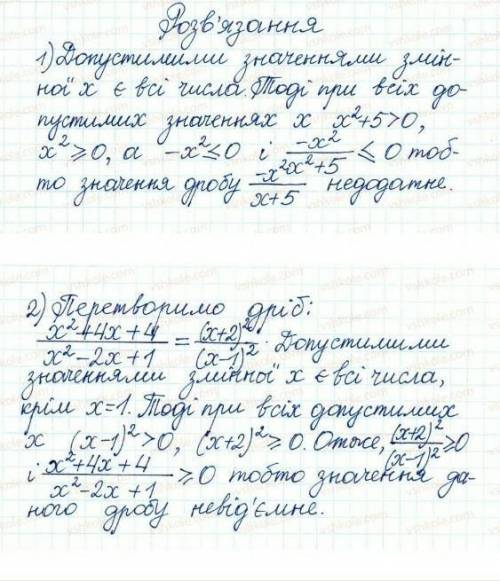 Розв'язання
1) Допустимими значеннями змін-
ної x є всі числа. Тоді при всіх до-
пустимих значеннях x x²+5>0,
x²⩾0, а -x²⩽0 і -x²/x²+5 ⩽0 тоб-
то значення дробу -x²/x+5 недодатне.
2) Перетворимо дріб:
x²+4x+4/x²-2x+1 = (x+2)²/(x-1)². Допустимими
значеннями змінної x є всі числа,
крім x=1. Тоді при всіх допустимих
x (x-1)²>0, (x+2)²⩾0. Отже, (x+2)²/(x-1)²⩾0
і x²+4x+4/x²-2x+1 ⩾0 тобто значення да-
ного дробу невід'ємне.